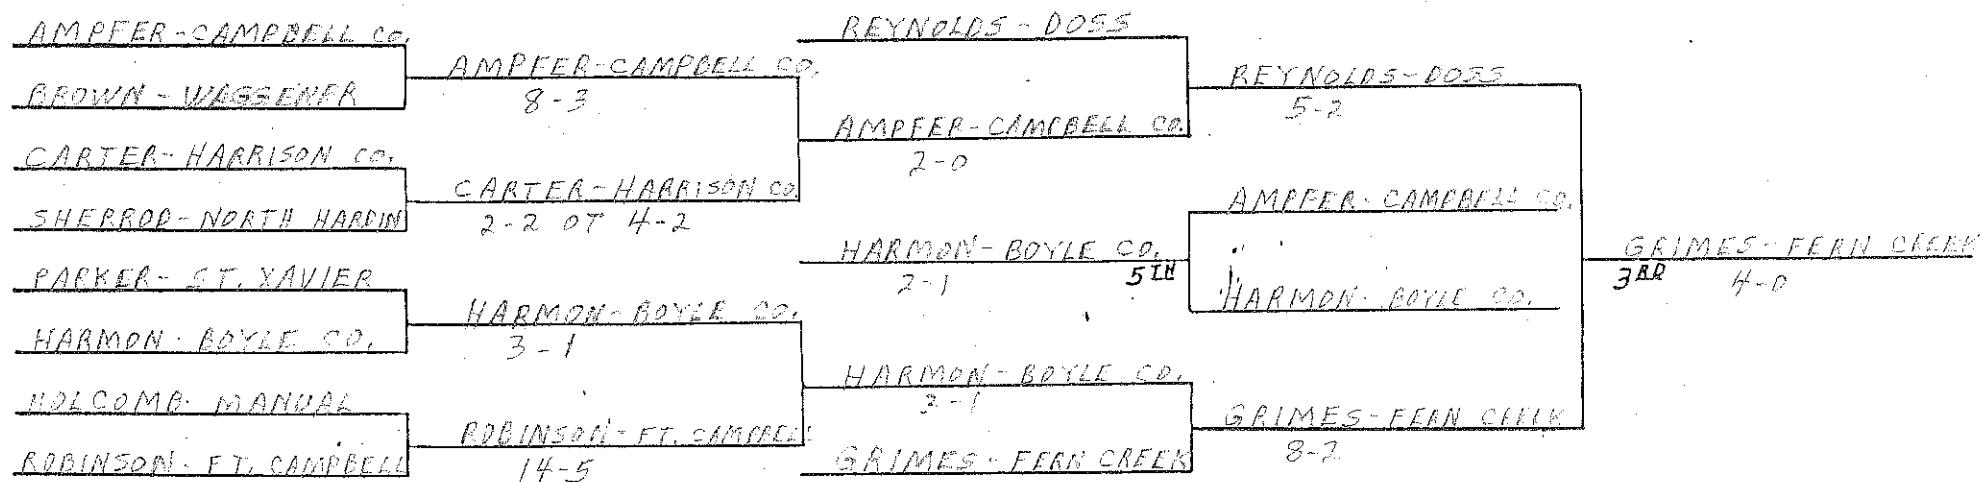 AMPFER-CAMPBELL CO.
BROWN-WAGGENER
CARTER-HARRISON CO.
SHERROD-NORTH HARDIN
PARKER-ST. XAVIER
HARMON-BOYLE CO.
HOLCOMB-MANUAL
ROBINSON-FT. CAMPBELL
AMPFER-CAMPBELL CO.
8-3
CARTER-HARRISON CO.
2-2 OT 4-2
HARMON-BOYLE CO.
3-1
ROBINSON-FT. CAMPBELL
14-5
REYNOLDS-DOSS
AMPFER-CAMPBELL CO.
2-0
HARMON-BOYLE CO.
5TH
2-1
HARMON-BOYLE CO.
GRIMES-FERN CREEK
REYNOLDS-DOSS
5-2
AMPFER-CAMPBELL CO.
HARMON-BOYLE CO.
GRIMES-FERN CREEK
8-2
GRIMES-FERN CREEK
3RD
4-0